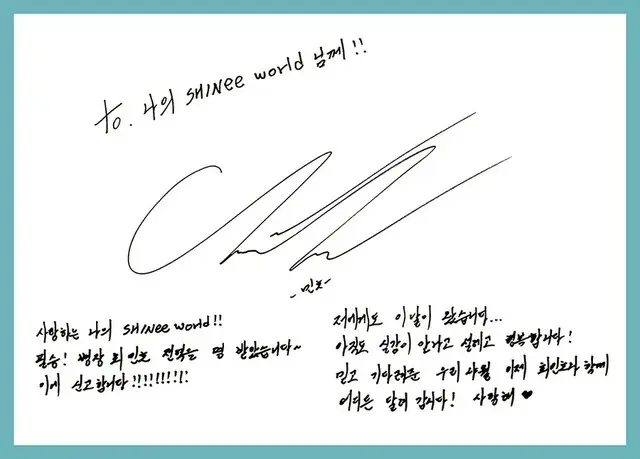 to. 나의 SHINee world 님께!!
-민호-
사랑하는 나의 SHINee world!!
필승! 병장 최민호 전역을 명 받았습니다~
이에 신고합니다!!!!!!!!!
저에게도 이 날이 왔습니다...
아직도 실감이 안나고 설레고 행복합니다!
믿고 기다려준 우리 샤월 이제 최민호와 함께
어디든 달려 갑니다! 사랑해 ♥